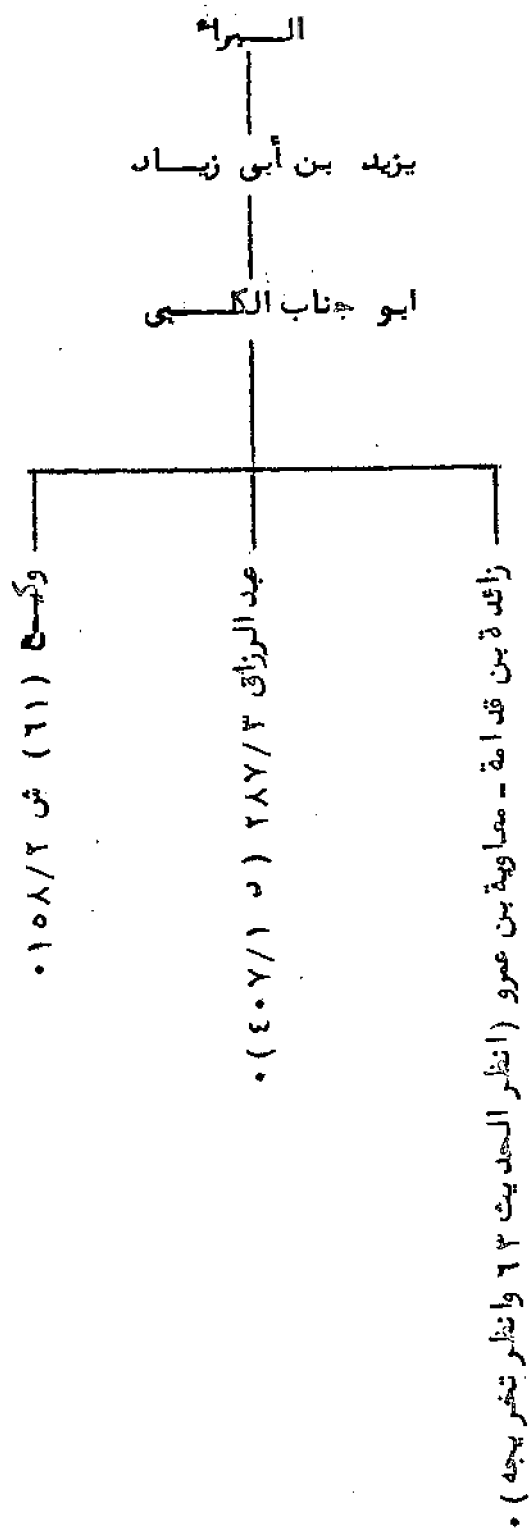 الـــبراء
يزيد بن أبى زيـــاد
ابو جناب الكلـــبى
زائدة بن قدامة - معاوية بن عمرو (انظر الحديث ٦٣ وانظر تخريجه) ٠
عبد الرزاق ٢٨٧/٣ ( د ٤٠٧/١) ٠
وكيـع (٦١) ش ١٥٨/٢ ٠